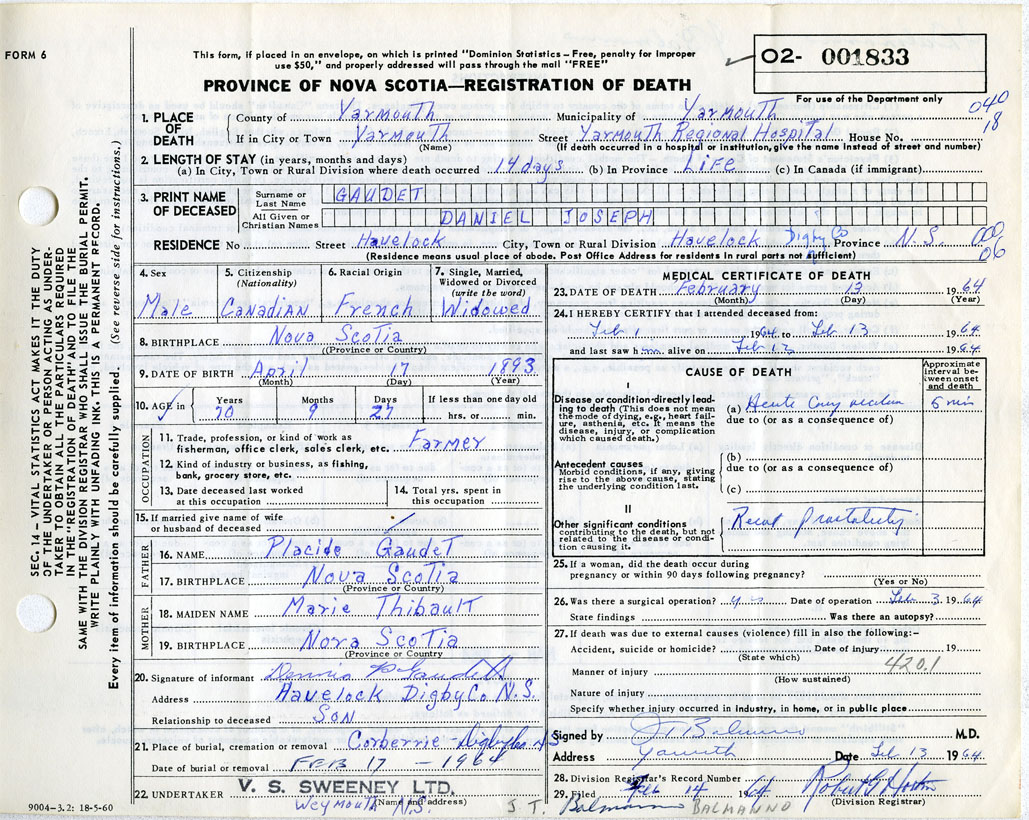 FORM 6
This form, if placed in an envelope, on which is printed "Dominion Statistics – Free, penalty for improper
use $50," and properly addressed will pass through the mail "FREE"
O2- 001833
PROVINCE OF NOVA SCOTIA—REGISTRATION OF DEATH
For use of the Department only
040
18
1. PLACE OF DEATH
County of Yarmouth Municipality of Yarmouth
If in City or Town Yarmouth Street Yarmouth Regional Hospital House No.
(Name) (If death occurred in a hospital or institution, give the name instead of street and number)
2. LENGTH OF STAY (in years, months and days)
(a) In City, Town or Rural Division where death occurred 14 days (b) In Province Life (c) In Canada (if immigrant)
3. PRINT NAME OF DECEASED
Surname or Last Name GAUDET
All Given or Christian Names DANIEL JOSEPH
RESIDENCE No Street Havelock City, Town or Rural Division Havelock Digby Co Province N.S. 000
06
(Residence means usual place of abode. Post Office Address for residents in rural parts not sufficient)
4. Sex Male
5. Citizenship (Nationality) Canadian
6. Racial Origin French
7. Single, Married, Widowed or Divorced (write the word) Widowed
8. BIRTHPLACE Nova Scotia
(Province or Country)
9. DATE OF BIRTH April 17 1893
(Month) (Day) (Year)
10. AGE in Years Months Days If less than one day old
70 9 27 hrs. or min.
OCCUPATION
11. Trade, profession, or kind of work as fisherman, office clerk, sales clerk, etc. Farmer
12. Kind of industry or business, as fishing, bank, grocery store, etc.
13. Date deceased last worked at this occupation
14. Total yrs. spent in this occupation
15. If married give name of wife or husband of deceased
FATHER
16. NAME Placide Gaudet
17. BIRTHPLACE Nova Scotia
(Province or Country)
MOTHER
18. MAIDEN NAME Marie Thibault
19. BIRTHPLACE Nova Scotia
(Province or Country
20. Signature of informant Dennis P Gaudett
Address Havelock Digby Co N.S.
Relationship to deceased Son
21. Place of burial, cremation or removal Corberrie - Digby Co NS
Date of burial or removal FEB 17 – 1964
22. UNDERTAKER V. S. SWEENEY LTD.
(Name and address) Weymouth N.S.
9004-3.2: 18-5-60
MEDICAL CERTIFICATE OF DEATH
23. DATE OF DEATH February 13 1964
(Month) (Day) (Year)
24. I HEREBY CERTIFY that I attended deceased from:
Feb 1 1964 to Feb 13 1964
and last saw him alive on Feb 13 1964
CAUSE OF DEATH
Approximate interval between onset and death
I
Disease or condition directly leading to death (This does not mean the mode of dying, e.g., heart failure, asthenia, etc. It means the disease, injury, or complication which caused death.)
(a) Acute 5 min
due to (or as a consequence of)
Antecedent causes
Morbid conditions, if any, giving rise to the above cause, stating the underlying condition last.
(b)
due to (or as a consequence of)
(c)
II
Other significant conditions contributing to the death, but not related to the disease or condition causing it.
25. If a woman, did the death occur during pregnancy or within 90 days following pregnancy?
(Yes or No)
26. Was there a surgical operation? yes Date of operation Feb 3 1964
State findings Was there an autopsy?
27. If death was due to external causes (violence) fill in also the following:–
Accident, suicide or homicide? Date of injury 19
(State which)
Manner of injury 420.1
(How sustained)
Nature of injury
Specify whether injury occurred in industry, in home, or in public place
Signed by J T Balmanno M.D.
Address Yarmouth Date Feb 13 1964
28. Division Registrar's Record Number
29. Filed Feb 14 1964
(Division Registrar)
J. T. Balmanno BALMANNO
SEC. 14 – VITAL STATISTICS ACT MAKES IT THE DUTY
OF THE UNDERTAKER OR PERSON ACTING AS UNDER-
TAKER TO OBTAIN ALL THE PARTICULARS REQUIRED
IN THE "REGISTRATION OF DEATH" AND TO FILE THE
SAME WITH THE DIVISION REGISTRAR WHO SHALL ISSUE THE BURIAL PERMIT.
WRITE PLAINLY WITH UNFADING INK. THIS IS A PERMANENT RECORD.
Every item of information should be carefully supplied. (See reverse side for instructions.)